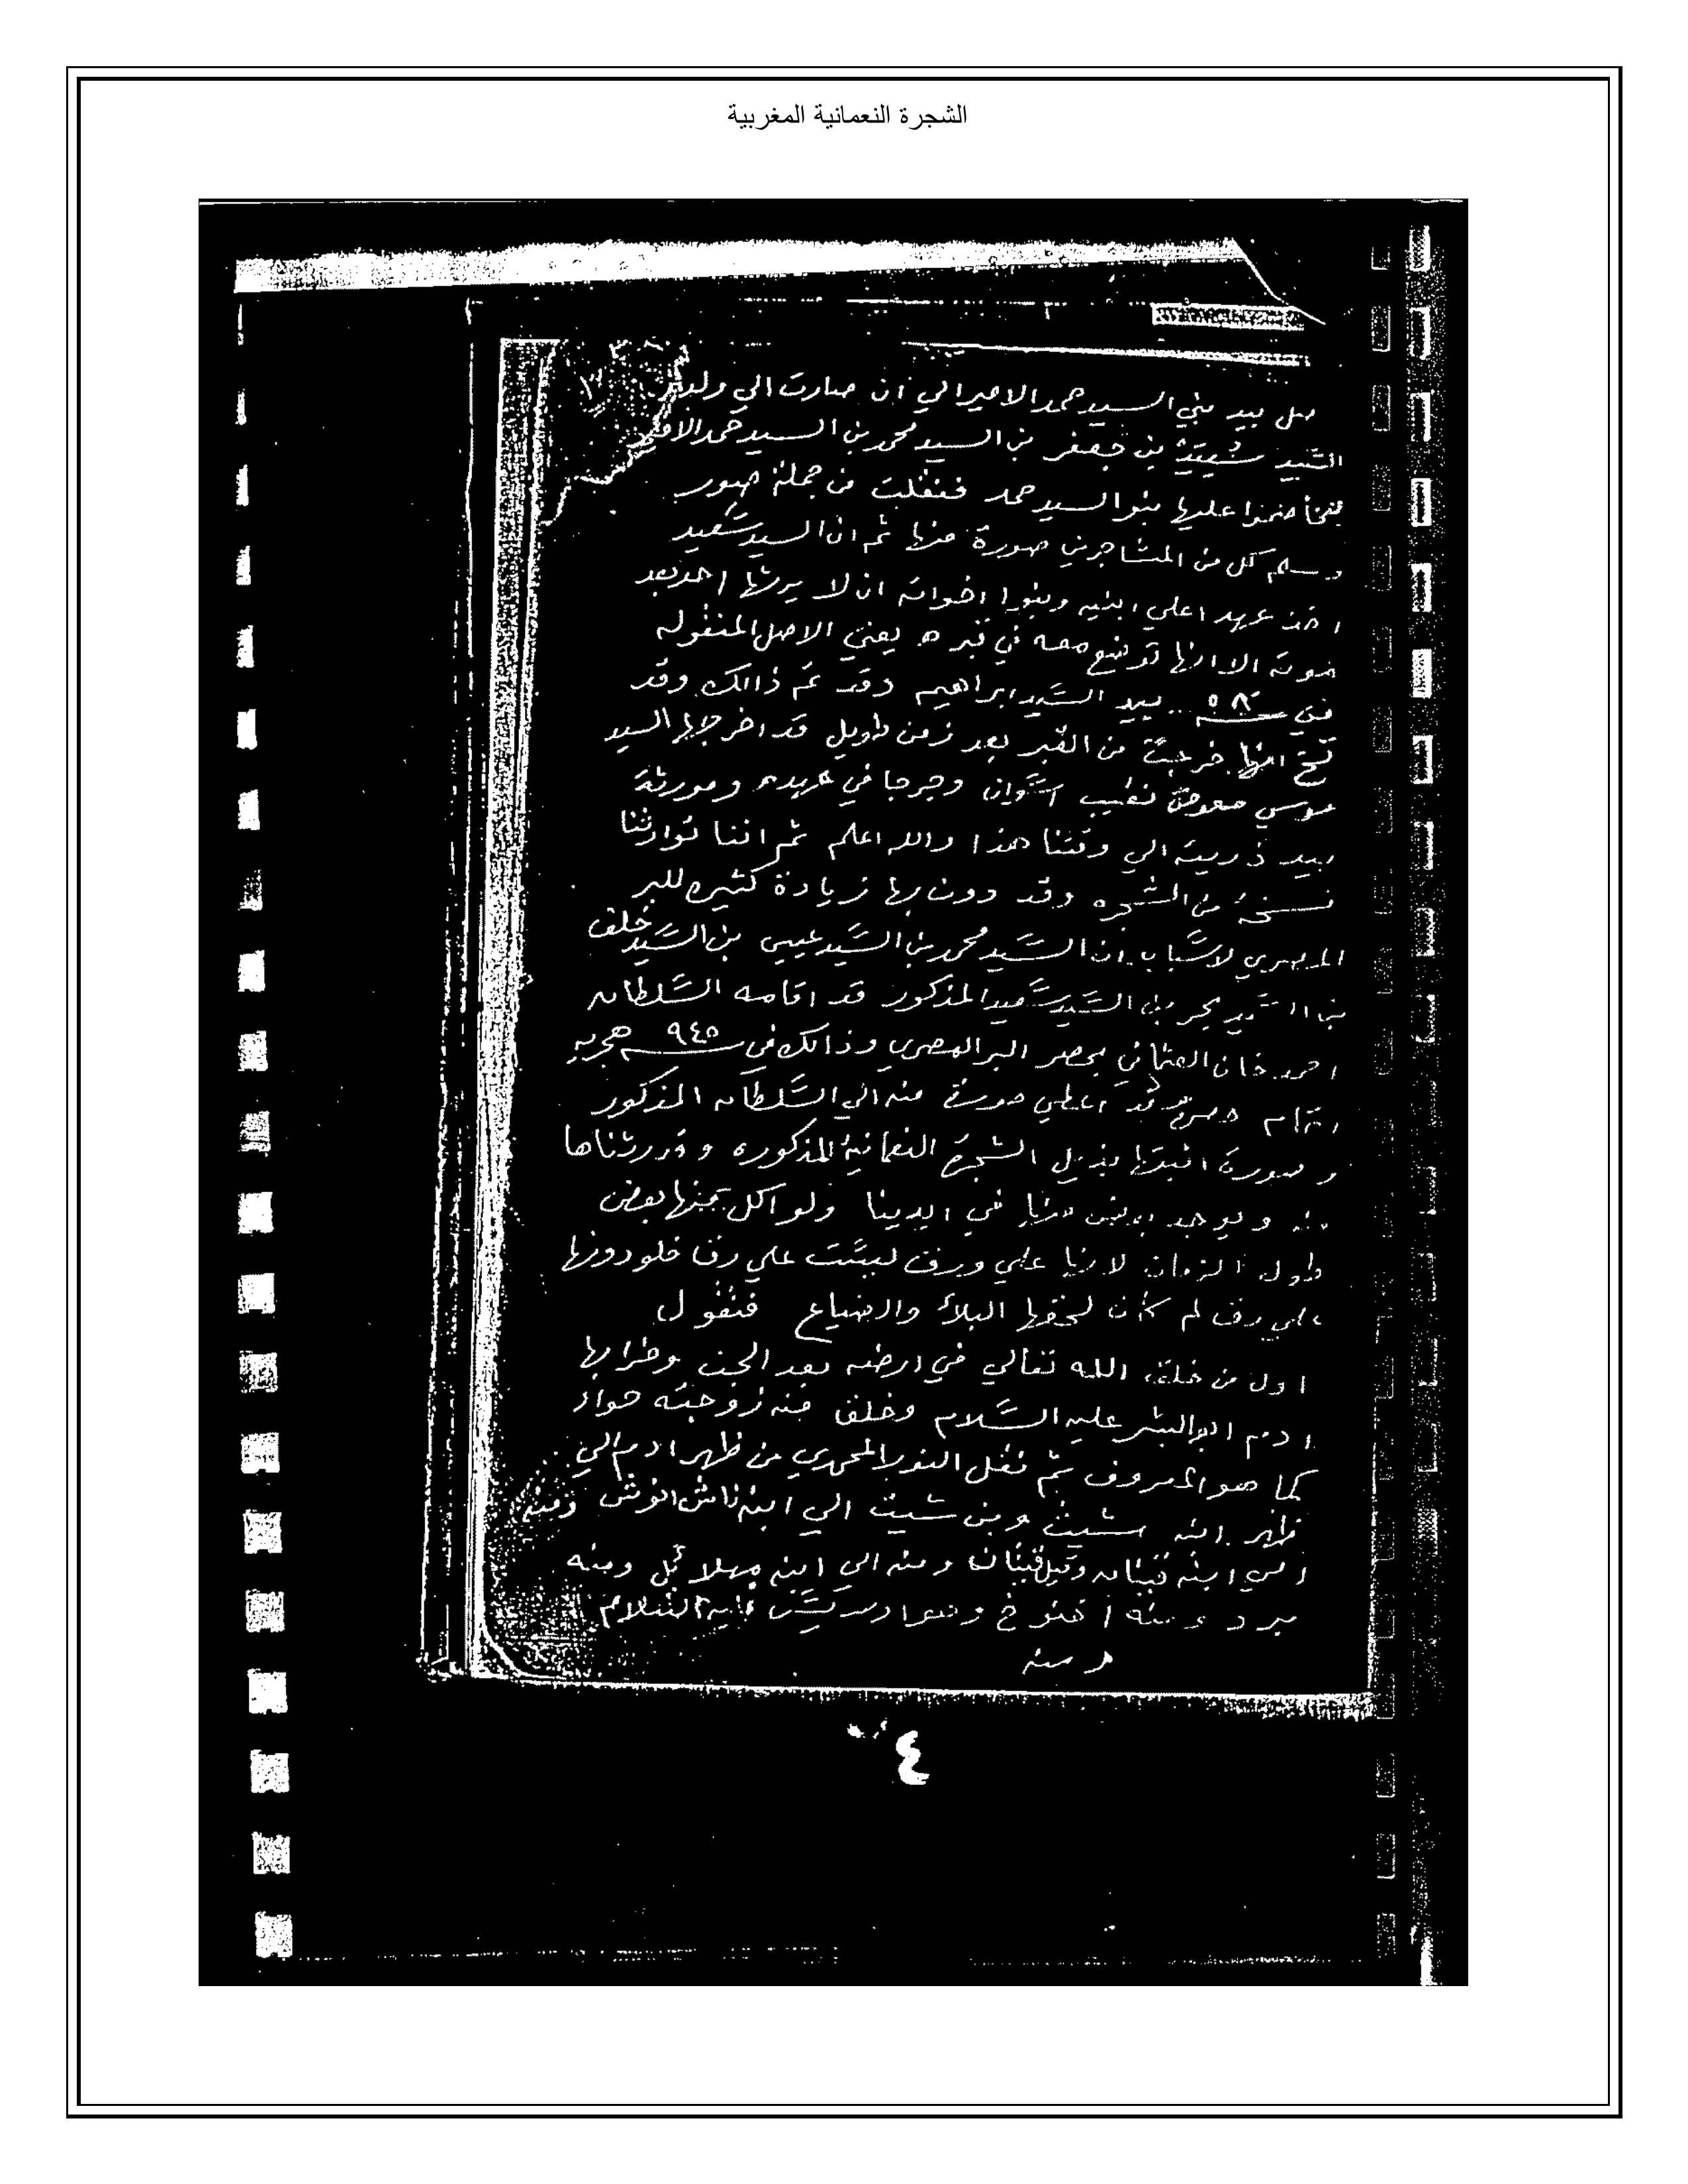 الشجرة النعمانية المغربية
بيد بني السيد حمد الامير الي ان صارت الي ولده
السيد بن جعفر بن السيد محمد بن السيد حمد
عليها بنوا السيد حمد فنقلت من جملة صور
وسلم كل من المشاجرين صورة منها ثم ان السيد سعيد
اخذ عهد اعلي ابنيه وبنوا اخواته ان لا يرثها احد بعد
موته الا انها توضع معه في قبره يعني الاصل المنقوله
في بيد السيد ابراهيم وقد تم ذالك وقد
صح انها خرجت من القبر بعد زمن طويل قد اخرجها السيد
موسي معوض نقيب اسوان وجرجا في عهده ومورثة
بيد ذريته الي وقتنا هذا والله اعلم ثم اننا توارثنا
نسخة من الشجره وقد دون بها زيادة كثيره للبر
المصري لاسباب ان السيد محمد بن السيد عيسي بن السيد خلف
بن السيد بحر بن السيد سعيد المذكور قد اقامه السلطان
احمد خان العثماني بمصر البر المصري وذالك في ٩٤٥ هجريه
قد اعطي صورة منه الي السلطان المذكور
و صورة اثبتها بذيل الشجرة النعمانية المذكوره وورثناها
منه ويوجد في ايدينا ولو اكل بعض
طول الزمان لانها علي ورق ليست علي رق فلو دونها
علي رق لم كان لحقها البلاء والضياع فنقول
اول من خلق الله تعالي في ارضه بعد الجن
ادم ابو البشر عليه السلام وخلق منه زوجته حواء
كما هو المعروف ثم نقل النور المحمدي من ظهر ادم الي
ظهر ابنه شيث ومن شيث الي ابنه انوش ومنه
الي ابنه قينان وقيل قينان ومنه الي ابنه مهلائيل ومنه
يرد ومنه اخنوخ وهوا دريس عليه السلام
ومنه
٤